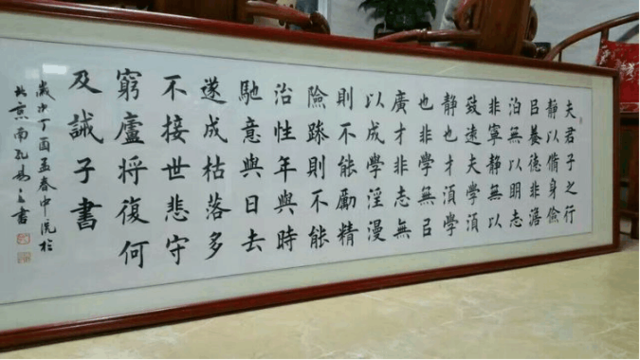 夫君子之行
静以脩身儉
㠯養德非澹
泊無以明志
非寧静無以
致遠夫學湏
静也才湏學
也非學無㠯
廣才非志無
以成學淫漫
則不能勵精
險躁則不能
治性年與時
馳意與日去
遂成枯落多
不接世悲守
窮廬將復何
及誡子書
歲次丁酉孟春中浣於
北京南孔書